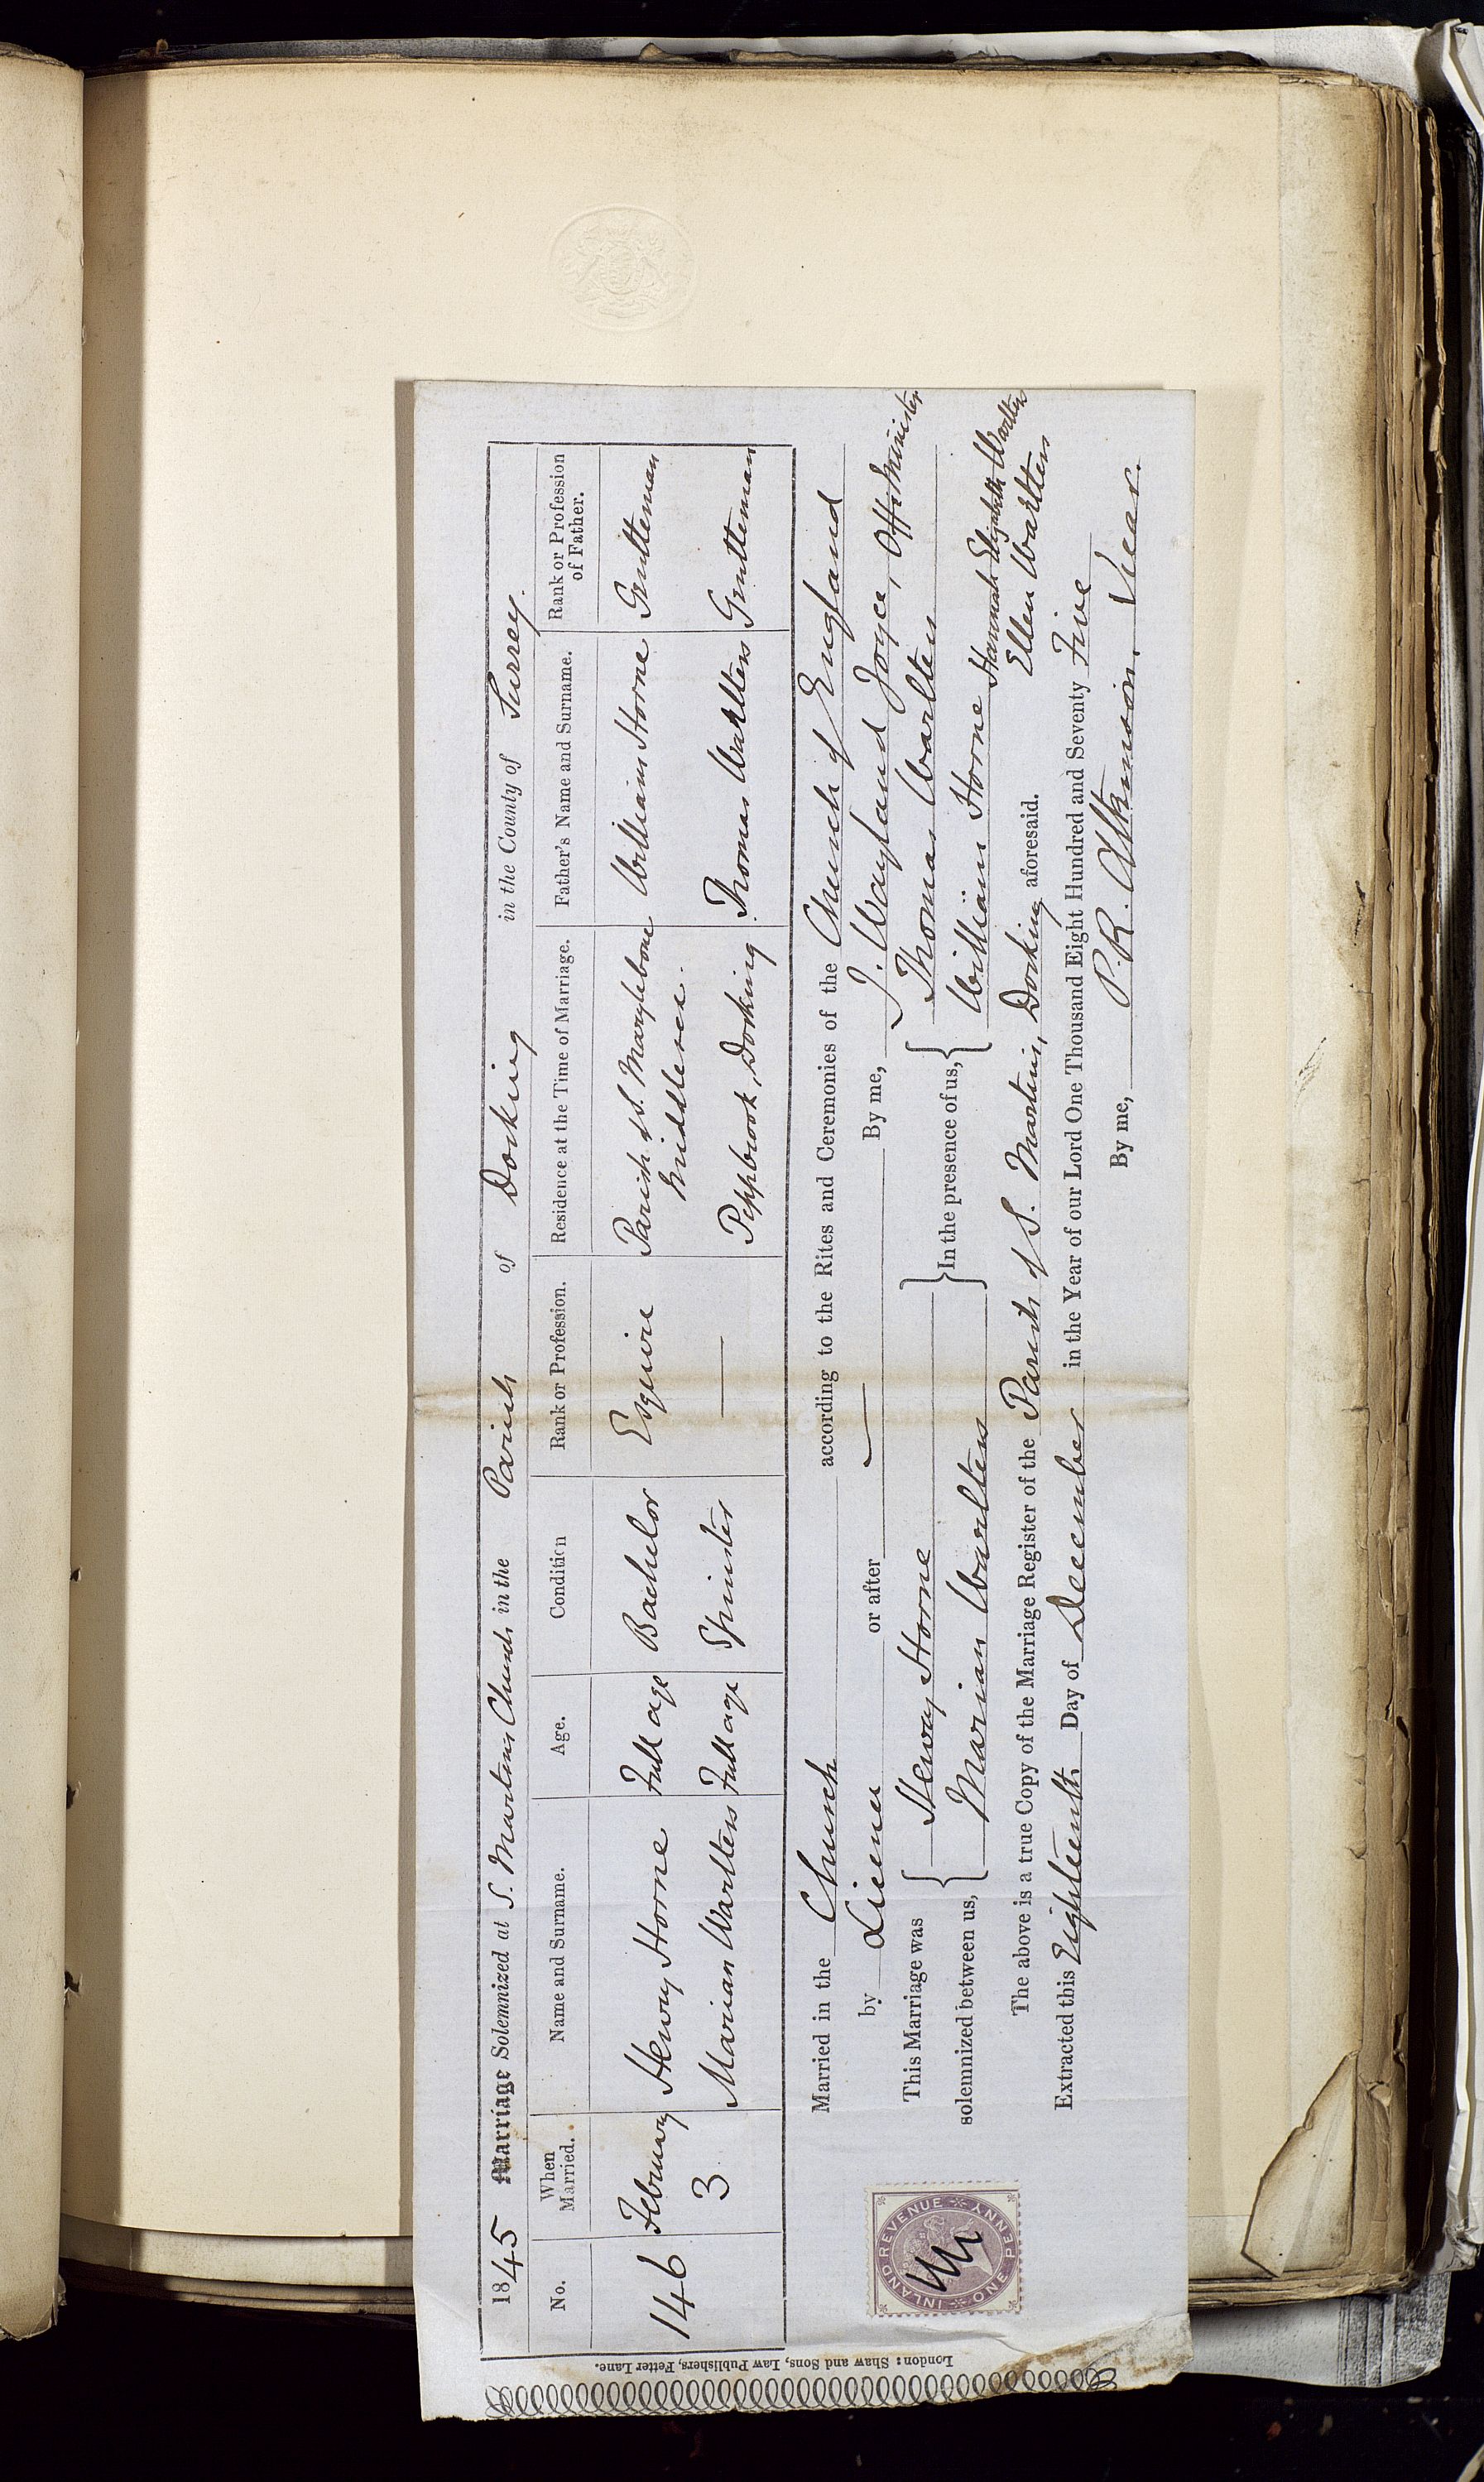 1845 Marriage Solemnized at S. Martins Church in the Parish of Dorking in the County of Surrey.
No. When Married. Name and Surname. Age. Condition Rank or Profession. Residence at the Time of Marriage. Father's Name and Surname. Rank or Profession of Father.
146 February 3 Henry Horne Full age Bachelor Esquire Parish of S. Marylebone Middlesex. William Horne Gentleman
Marian Warlters Full age Spinster — Pippbrook, Dorking Thomas Warlters Gentleman
Married in the Church according to the Rites and Ceremonies of the Church of England
by Licence or after — By me, J. Wayland Joyce, Offg Minister
This Marriage was solemnized between us, { Henry Horne } In the presence of us, { Thomas Warlters
Marian Warlters William Horne Hannah Elizabeth Warlters
Ellen Warlters
The above is a true Copy of the Marriage Register of the Parish of S. Martins, Dorking aforesaid.
Extracted this Eighteenth Day of December in the Year of our Lord One Thousand Eight Hundred and Seventy Five
By me, P. R. Atkinson, Vicar.
INLAND REVENUE
ONE PENNY
London: Shaw and Sons, Law Publishers, Fetter Lane.